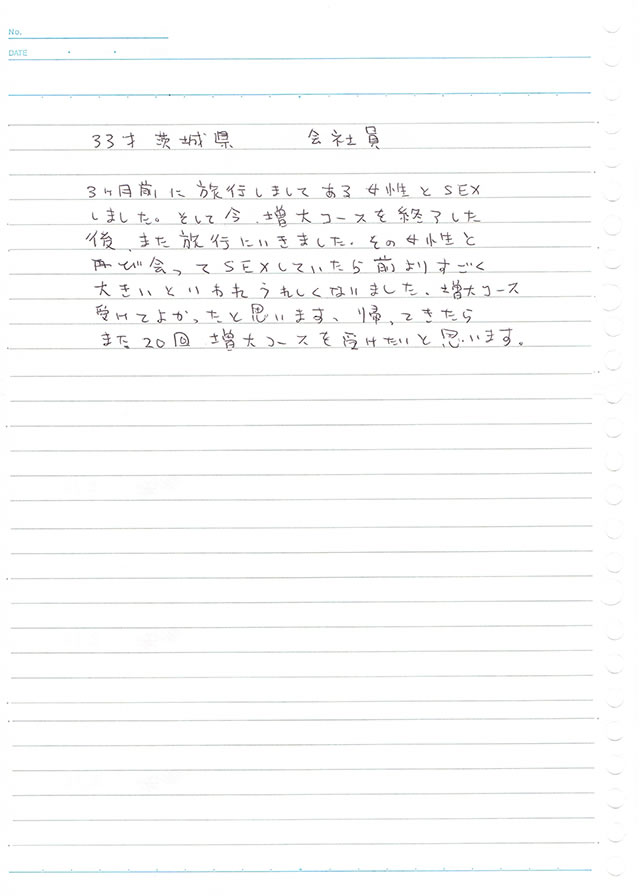 No.
DATE
33才 茨城県 会社員
3ヶ月前に旅行しましてある女性とSEX
しました。そして今、増大コースを終了した
後、また旅行にいきました。その女性と
再び会ってSEXしていたら前よりすごく
大きいといわれうれしくなりました、増大コース
受けてよかったと思います、帰ってきたら
また20回増大コースを受けたいと思います。